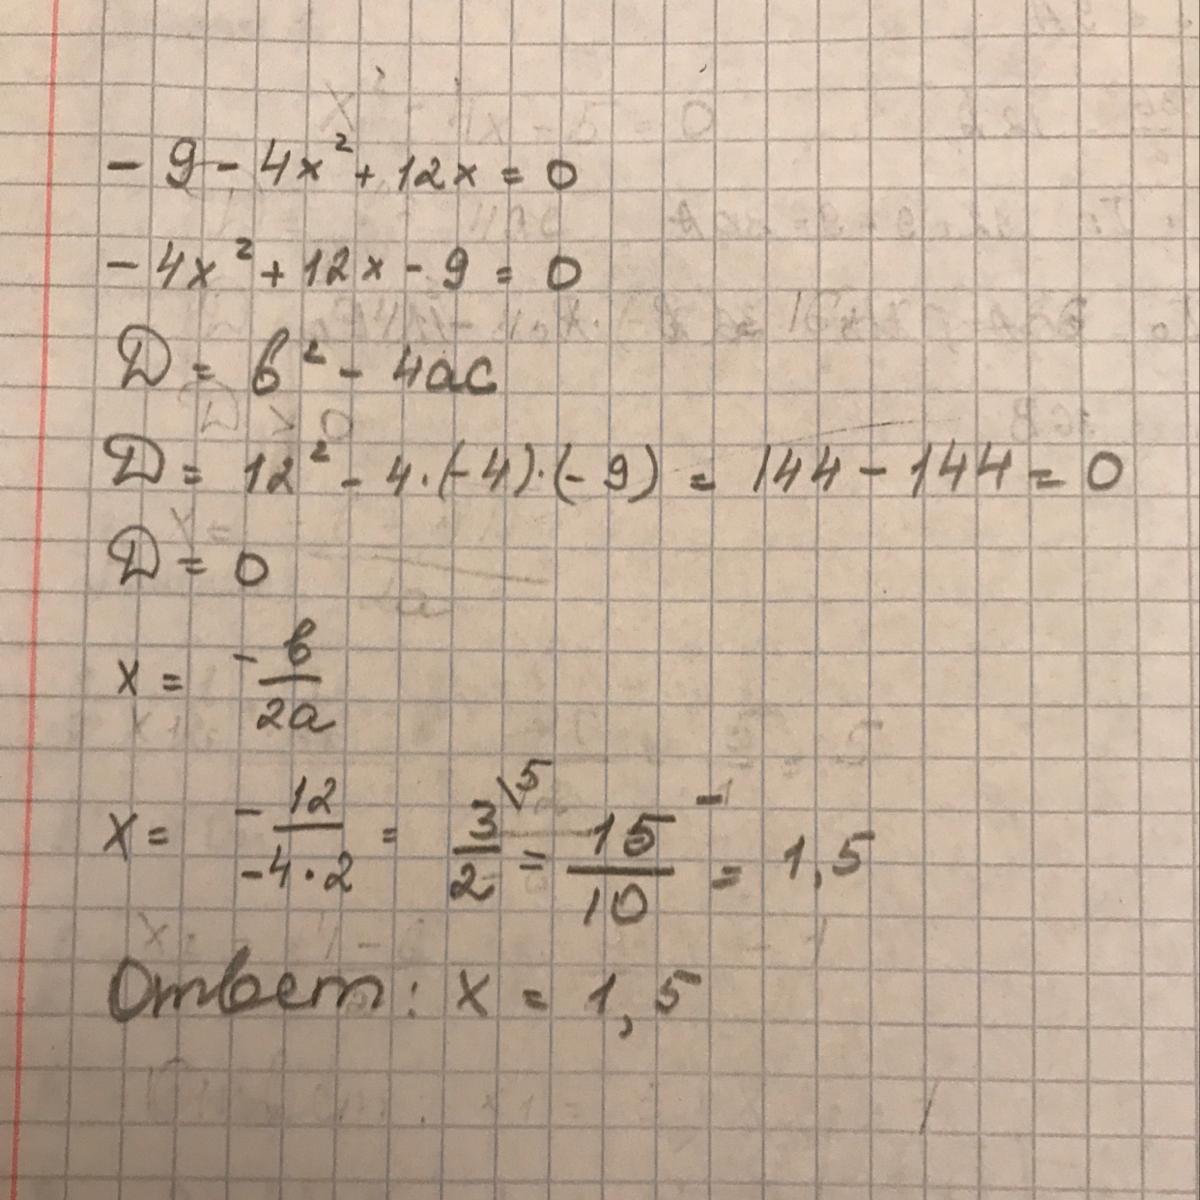 - 9 - 4x² + 12x = 0
- 4x² + 12x - 9 = 0
D = b² - 4ac
D = 12² - 4·(-4)·(-9) = 144 - 144 = 0
D = 0
x = -b/2a
x = -12/-4·2 = 3\5/2 = 15/10 = 1,5
Ответ: x = 1,5